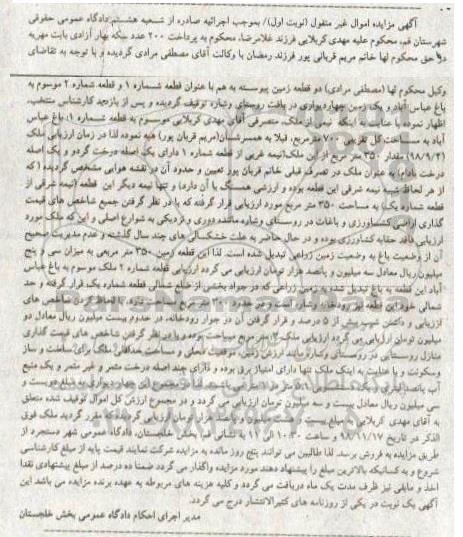 آگهی مزایده اموال غیر منقول (نوبت اول)/ بموجب اجرائیه صادره از شعبه هشتم دادگاه عمومی حقوقی
شهرستان قم، محکوم علیه مهدی کربلایی فرزند غلامرضا، محکوم به پرداخت ۲۰۰ عدد سکه بهار آزادی بابت مهریه
در حق محکوم لها خانم مریم قربانی پور فرزند رمضان با وکالت آقای مصطفی مرادی گردیده و با توجه به تقاضای
وکیل محکوم لها (مصطفی مرادی) دو قطعه زمین پیوسته به هم با عنوان قطعه شماره ۱ و قطعه شماره ۲ موسوم به
باغ عباس آباد و یک زمین چهاردیواری در بافت روستای وشاره توقیف گردیده و پس از بازدید کارشناس منتخب،
اظهار نموده با عنایت به اینکه نیمی از ملک، متصرفی آقای مهدی کربلایی موسوم به قطعه شماره ۱، باغ عباس
آباد به مساحت کل تقریبی ۷۰۰ مترمربع، قبلا به همسرشان (مریم قربان پور) هبه نموده لذا در زمان ارزیابی ملک
(۹۸/۹/۳) مقدار ۳۵۰ متر مربع از این ملک (نیمه غربی از قطعه شماره ۱ دارای یک اصله درخت گردو و یک اصله
درخت بادام) به عنوان ملک در تصرف قبلی خانم قربان پور تعیین و حدود آن در نقشه هوایی مشخص گردیده (که
از هر لحاظ شبیه نیمه شرقی این قطعه بوده و ارزشی همسنگ با آن دارد) و تنها نیمه دیگر این قطعه (نیمه شرقی از
قطعه شماره یک) به مساحت ۳۵۰ متر مربع مورد ارزیابی قرار گرفته که با در نظر گرفتن جمیع شاخص های قیمت
گذاری اراضی کشاورزی و باغات در روستای وشاره مانند دوری و نزدیکی به شوارع اصلی و این که ملک مورد
ارزیابی فاقد حقابه کشاورزی بوده و در حال حاضر به علت خشکسالی های چند سال گذشته و عدم مدیریت صحیح
آن از وضعیت باغ به وضعیت زمین زراعی تبدیل شده است. لذا این قطعه زمین ۳۵۰ متر مربعی به میزان سی و پنج
میلیون ریال معادل سه میلیون و پانصد هزار تومان ارزیابی می گردد ارزیابی قطعه شماره ۲ ملک موسوم به باغ عباس
آباد این قطعه به باغ تبدیل شده به زمین زراعی که در جوار بخشی از ضلع شمالی قطعه شماره یک قرار گرفته و حد
شمالی خود این قطعه نیز رودخانه وشاره است و در حدود ۳۰۰ متر مربع مساحت دارد با لحاظ کردن شاخص های
ارزیابی و داشتن شیب بیش از ۵ درصد و قرار گرفتن آن در جوار رودخانه، در حدود بیست میلیون ریال معادل دو
میلیون تومان ارزیابی می گردد ارزیابی ملک متر مربع مساحت بوده و با در نظر گرفتن شاخص های قیمت گذاری
منازل روستایی در روستای وشاره مانند ارزش زمین، موقعیت محلی و مساحت ملک برای ساخت و ساز
و سکونت و با عنایت به اینکه ملک تنها دارای امتیاز برق بوده و دارای چند اصله درخت مثمر و غیر مثمر و یک منبع
آب می باشد لذا مجموع این چهاردیواری به مبلغ دویست و
سی میلیون ریال معادل بیست و سه میلیون تومان ارزیابی می گردد و در مجموع ارزش کل اموال توقیف شده متعلق
به آقای مهدی کربلایی به مبلغ بیست و هشت میلیون و هزار تومان ارزیابی گردیده که مقرر گردید ملک فوق
الذکر در تاریخ ۹۸/۱۱/۱۷ و ساعت ۱۰:۳۰ الی ۱۱ به نشانی قم بخش خلجستان، دادگاه عمومی شهر دستجرد از
طریق مزایده به فروش برسد. لذا طالبین می توانند پنج روز مانده به مزایده شرکت نمایند قیمت پایه از مبلغ کارشناسی
شروع و به کسانیکه بالاترین مبلغ را پیشنهاد دهند مورد مزایده واگذار می گردد ضمنا ده درصد از مبلغ پیشنهادی نقدا
اخذ و مابقی نیز ظرف مدت یک ماه دریافت می گردد و کلیه هزینه های مربوطه به عهده برنده مزایده می باشد این
آگهی یک نوبت در یکی از روزنامه های کثیرالانتشار درج می گردد.
مدیر اجرای احکام دادگاه عمومی بخش خلجستان